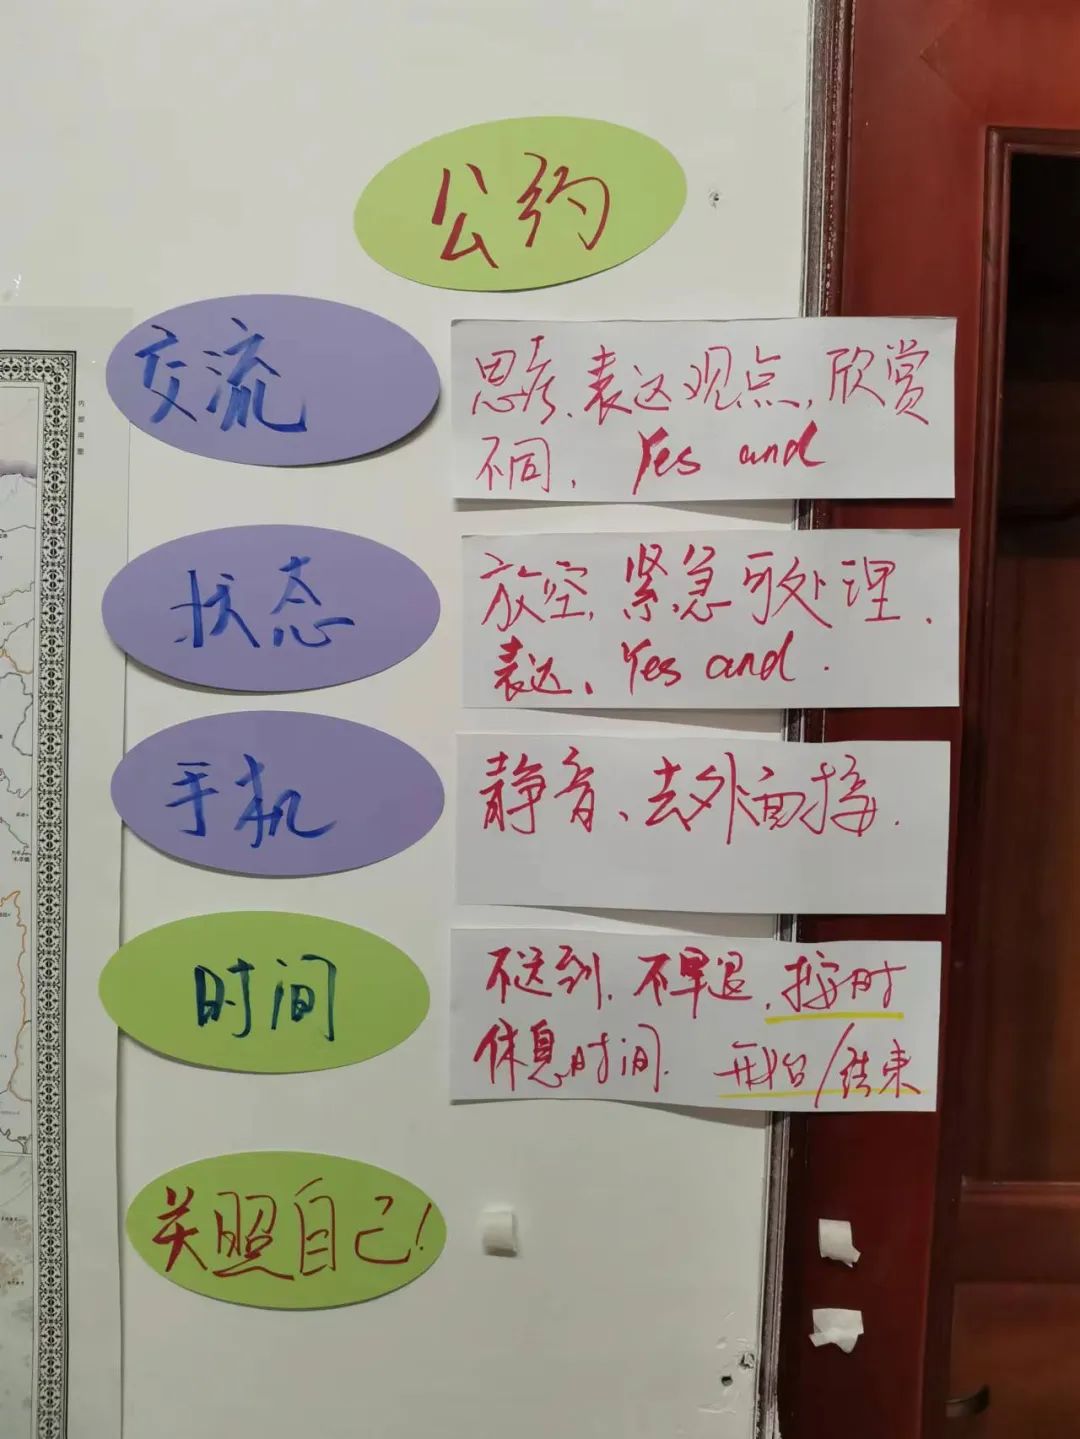 公约
交流
思考、表达观点，欣赏
不同、 Yes and
状态
放空，紧急可处理．
表达、Yes and．
手机
静音、去外面接．
时间
不迟到．不早退．按时
休息时间． 开始/结束
关照自己！